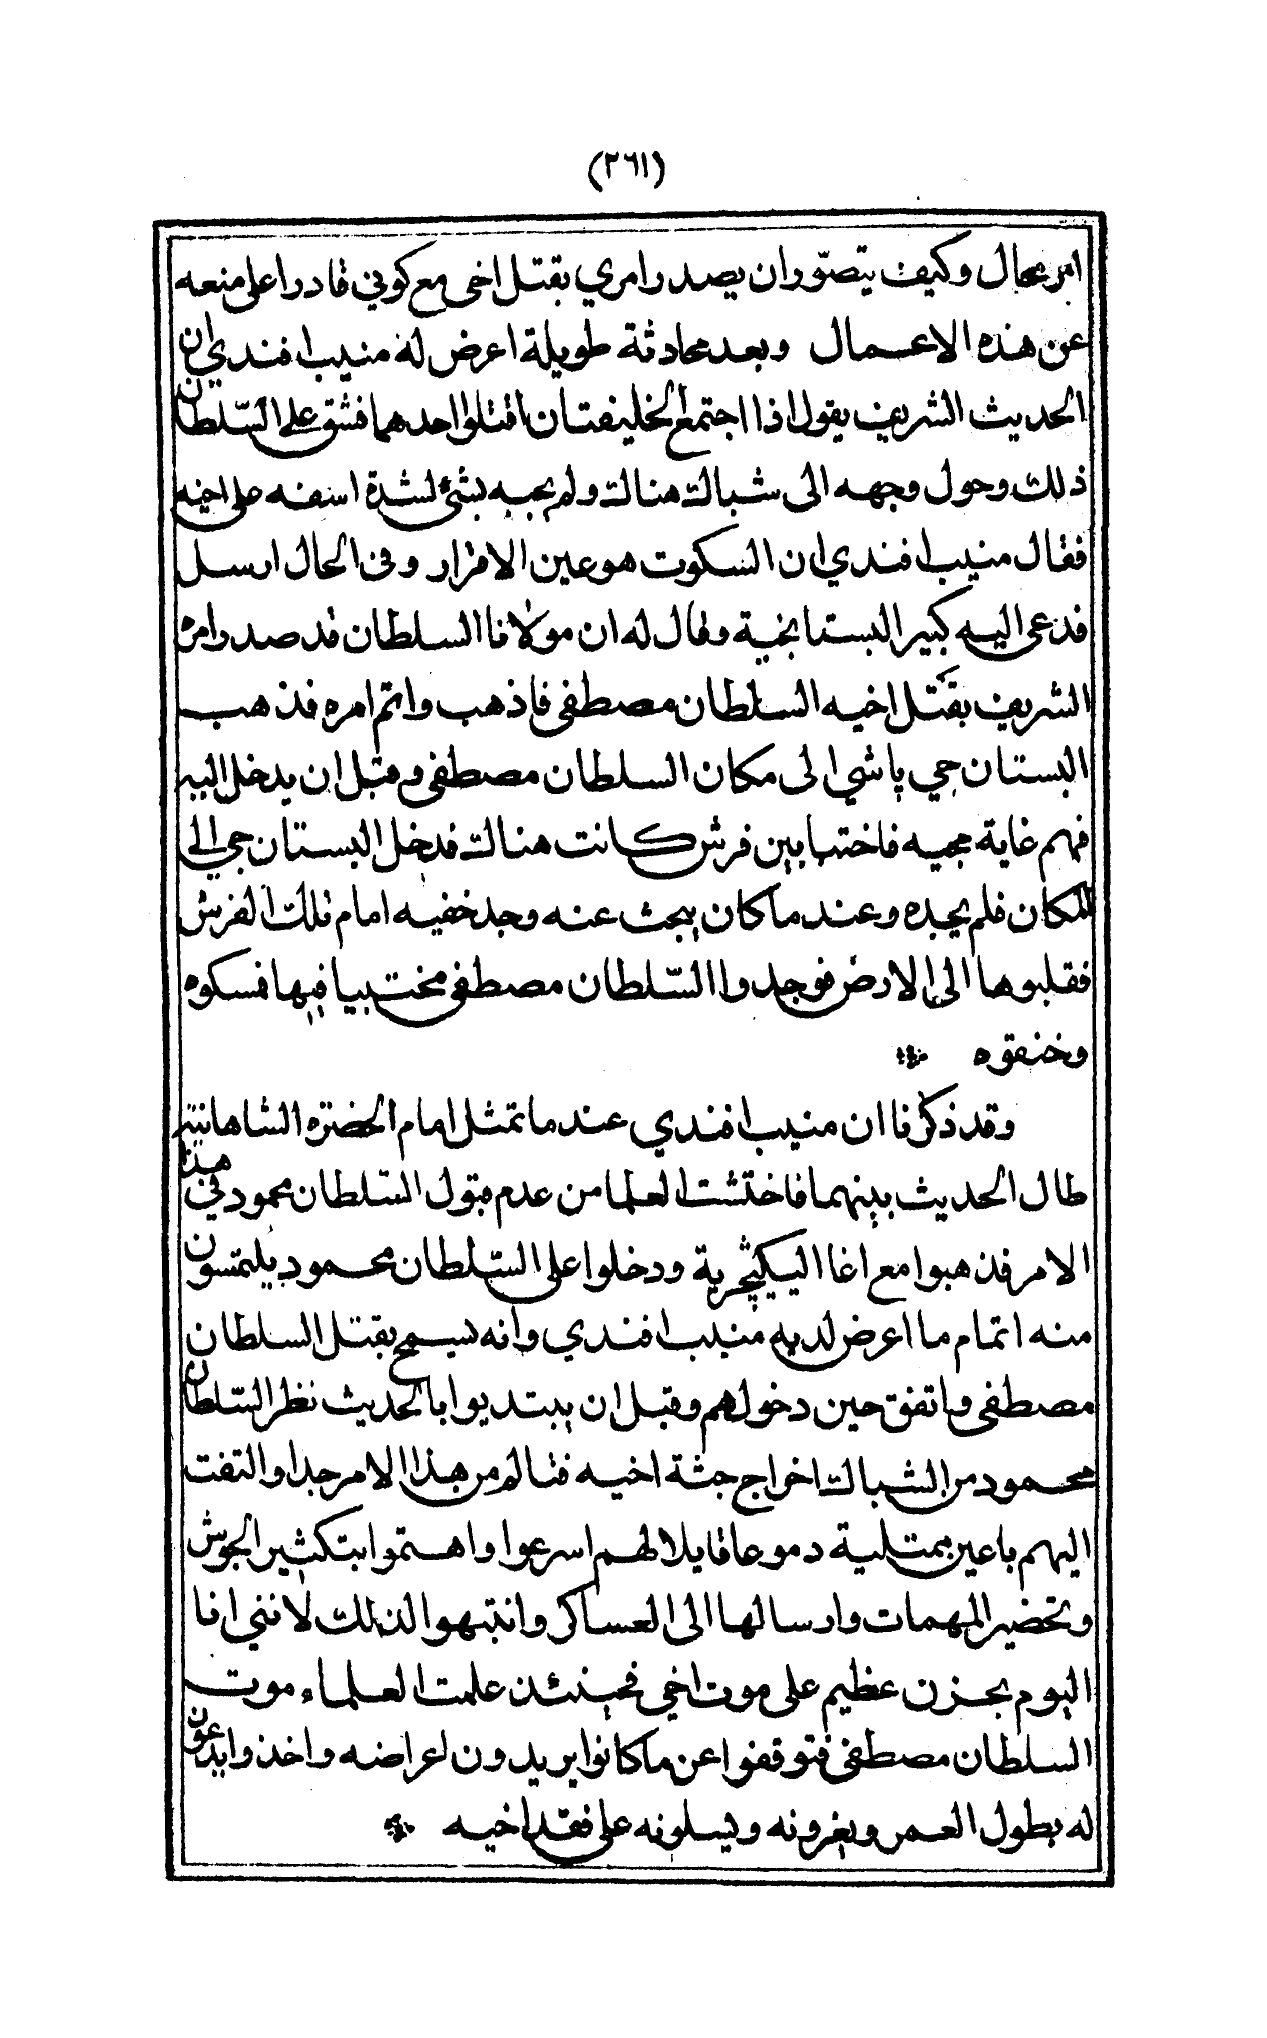 (٢٦١)
امر محال وكيف يتصوّر ان يصدر امري بقتل اخي مع كوني قادرا على منعه
عن هذه الاعمال وبعد محادثة طويلة اعرض له منيب افندي ان
الحديث الشريف يقول اذا اجتمع الخليفتان اقتلوا احدهما فشق على السّلطان
ذلك وحول وجهه الى شباك هناك ولم يجبه بشئ لشدة اسفه على اخيه
فقال منيب افندي ان السكوت هو عين الاقرار وفي الحال ارسل
فدعى اليه كبير البستانجية وقال له ان مولانا السلطان قد صدر امره
الشريف بقتل اخيه السلطان مصطفى فاذهب واتم امره فذهب
البستان جي باشي الى مكان السلطان مصطفى وقبل ان يدخل اليه
فهم غاية مجيه فاختبا بين فرش كانت هناك فدخل البستان جي الى
المكان فلم يجده وعند ما كان يبحث عنه وجد خفيه امام تلك الفرش
فقلبوها الى الارض فوجدوا السّلطان مصطفى مختبيا فيها فمسكوه
وخنقوه
وقد ذكرنا ان منيب افندي عند ما تمثل امام الحضرة الشاهانية
طال الحديث بينهما فاختشت العلما من عدم قبول السّلطان محمود في هذا
الامر فذهبوا مع اغا اليكيچرية ودخلوا على السّلطان محمود يلتمسون
منه اتمام ما اعرض لديه منيب افندي وانه يسمح بقتل السلطان
مصطفى واتفق حين دخولهم وقبل ان يبتديوا بالحديث نظر السّلطان
محمود من الشباك اخراج جثة اخيه فتالم من هذا الامر جدا والتفت
اليهم باعين ممتلية دموعا قايلا لهم اسرعوا واهتموا بتكثير الجيوش
وتحضير المهمات وارسالها الى العساكر وانتبهوا لذلك لانني انا
اليوم بحزن عظيم على موت اخي فحينئذ علمت العلماء موت
السلطان مصطفى فتوقفوا عن ما كانوا يريدون اعراضه واخذوا يدعون
له بطول العمر ويعزونه ويسلونه على فقد اخيه